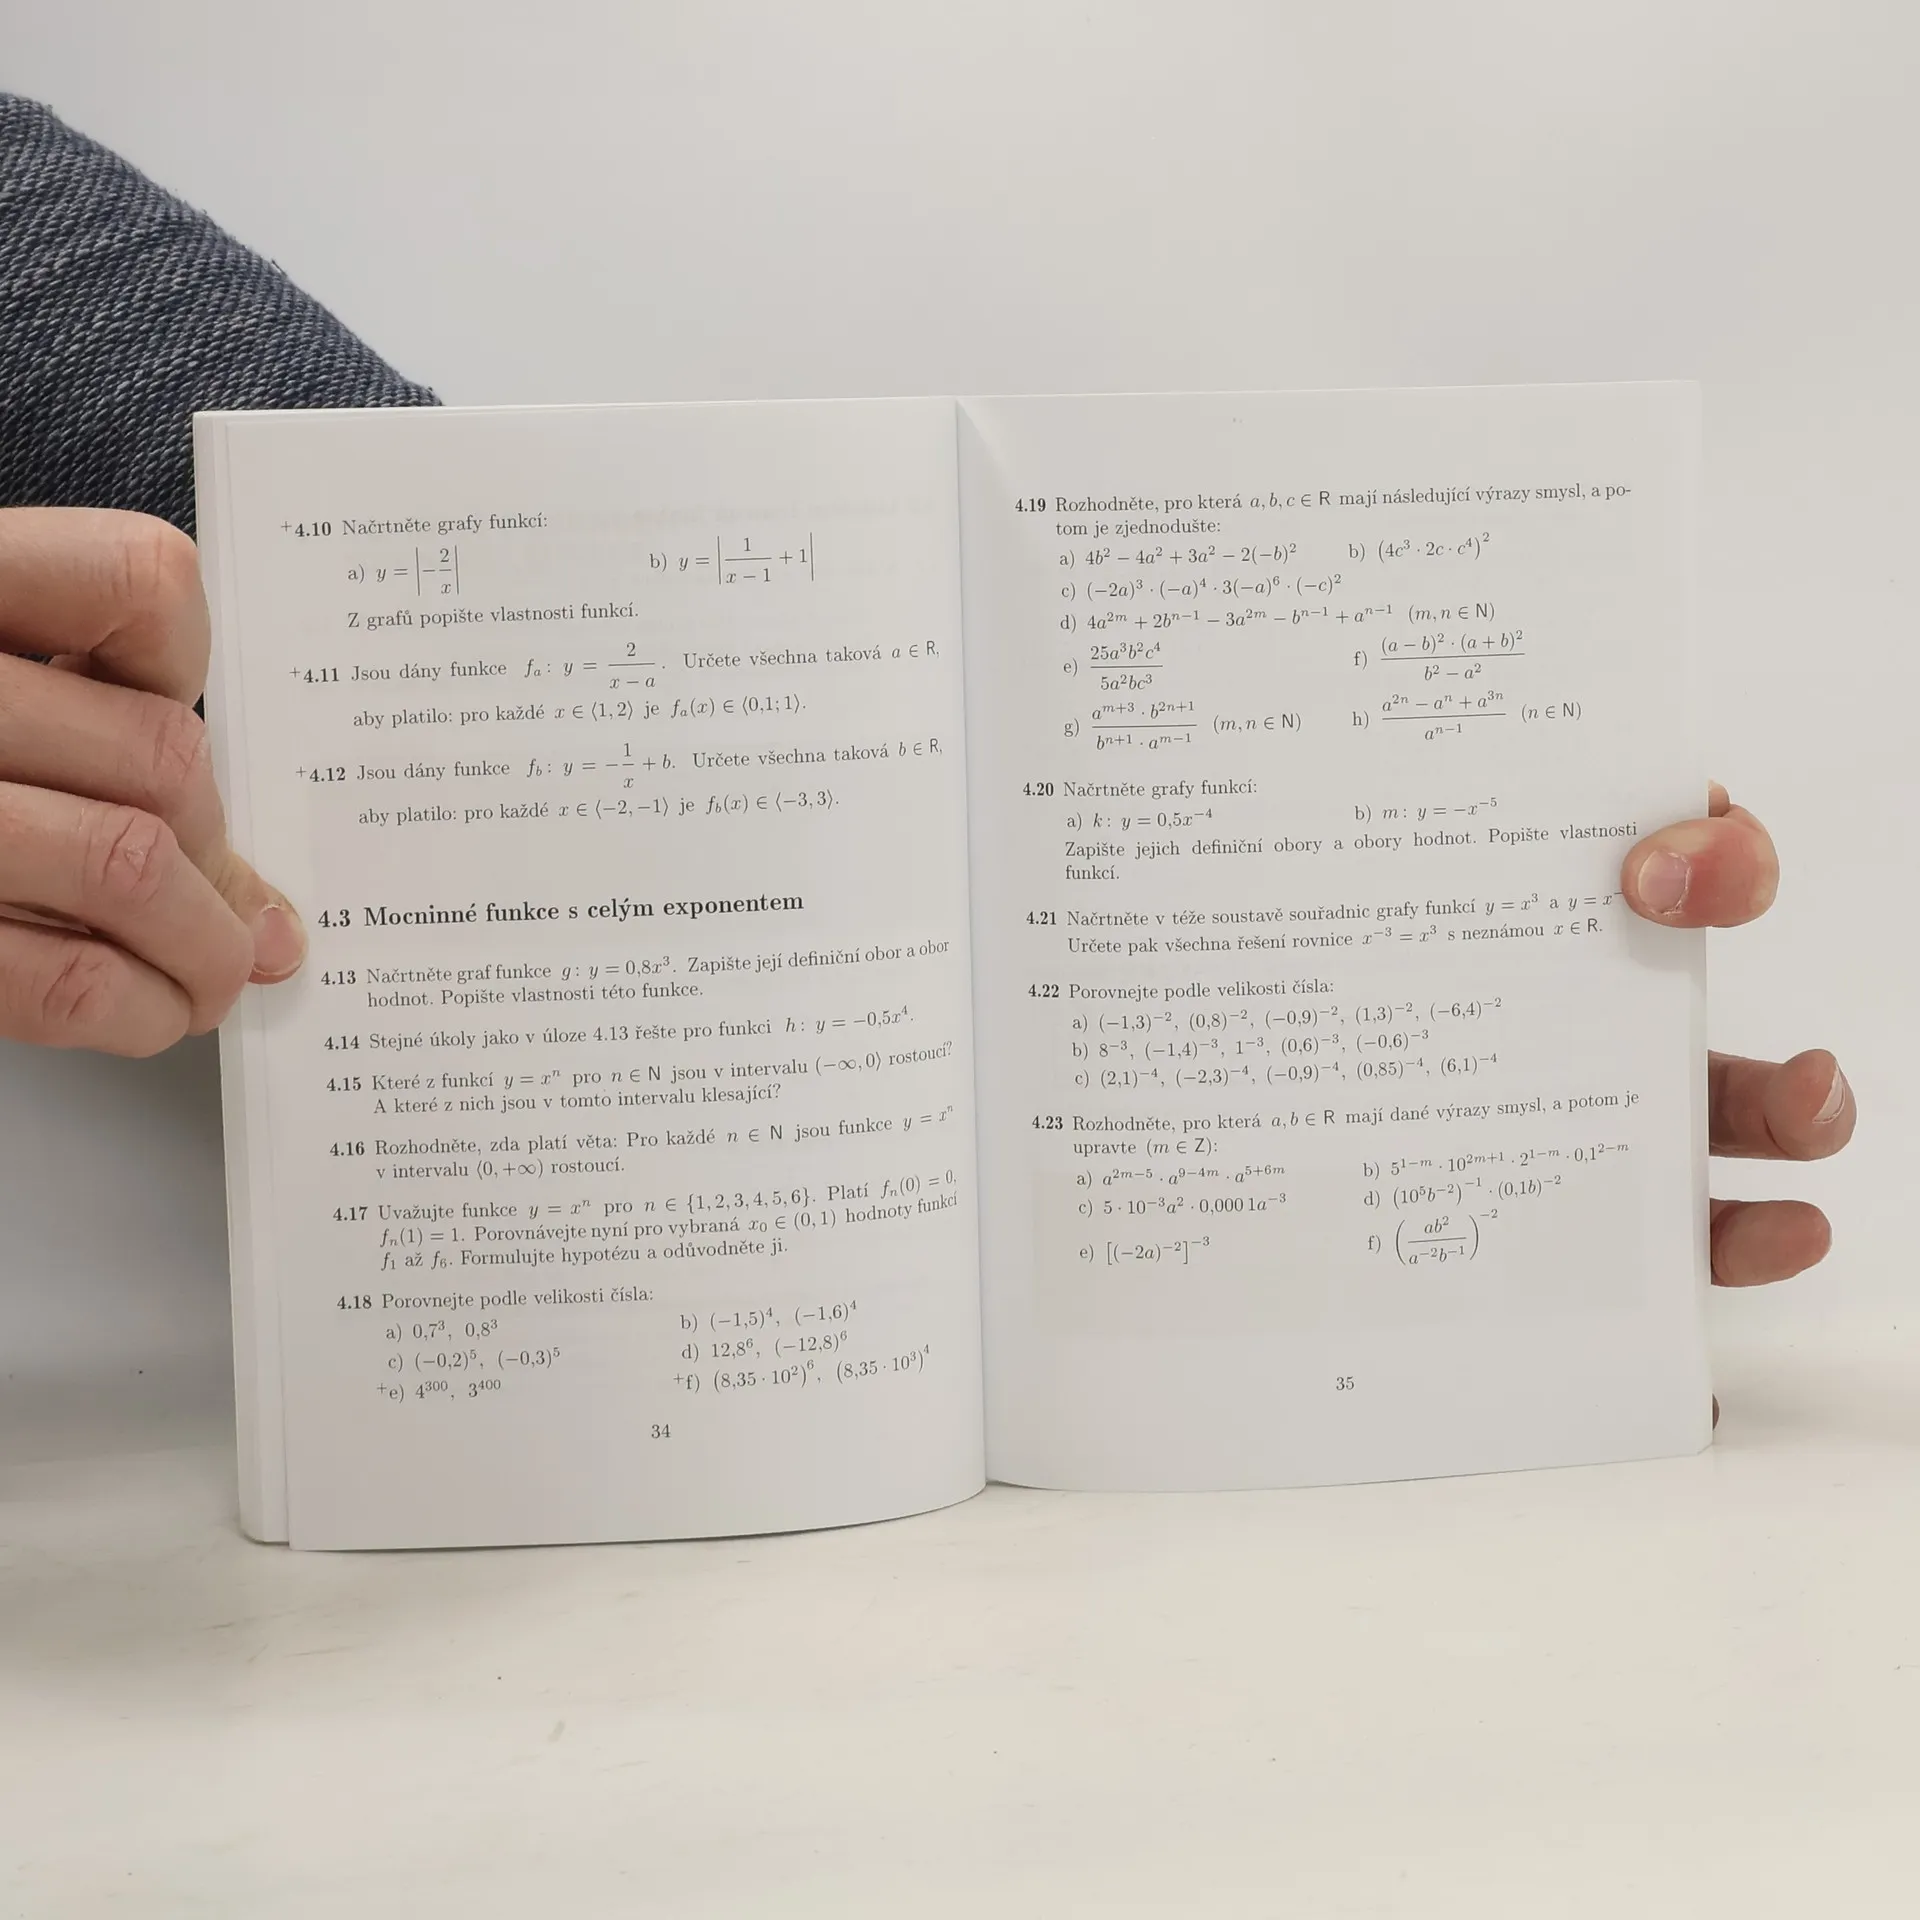 +4.10 Načrtněte grafy funkcí:
a) y = |−2/x| b) y = |1/(x − 1) + 1|
Z grafů popište vlastnosti funkcí.
+4.11 Jsou dány funkce fₐ: y = 2/(x − a). Určete všechna taková a ∈ R,
aby platilo: pro každé x ∈ ⟨1, 2⟩ je fₐ(x) ∈ ⟨0,1; 1⟩.
+4.12 Jsou dány funkce f_b: y = −1/x + b. Určete všechna taková b ∈ R,
aby platilo: pro každé x ∈ ⟨−2, −1⟩ je f_b(x) ∈ ⟨−3, 3⟩.
4.3 Mocninné funkce s celým exponentem
4.13 Načrtněte graf funkce g: y = 0,8x³. Zapište její definiční obor a obor
hodnot. Popište vlastnosti této funkce.
4.14 Stejné úkoly jako v úloze 4.13 řešte pro funkci h: y = −0,5x⁴.
4.15 Které z funkcí y = xⁿ pro n ∈ N jsou v intervalu (−∞, 0⟩ rostoucí?
A které z nich jsou v tomto intervalu klesající?
4.16 Rozhodněte, zda platí věta: Pro každé n ∈ N jsou funkce y = xⁿ
v intervalu ⟨0, +∞) rostoucí.
4.17 Uvažujte funkce y = xⁿ pro n ∈ {1, 2, 3, 4, 5, 6}. Platí fₙ(0) = 0,
fₙ(1) = 1. Porovnávejte nyní pro vybraná x₀ ∈ (0, 1) hodnoty funkcí
f₁ až f₆. Formulujte hypotézu a odůvodněte ji.
4.18 Porovnejte podle velikosti čísla:
a) 0,7³, 0,8³ b) (−1,5)⁴, (−1,6)⁴
c) (−0,2)⁵, (−0,3)⁵ d) 12,8⁶, (−12,8)⁶
+e) 4³⁰⁰, 3⁴⁰⁰ +f) (8,35 · 10²)⁶, (8,35 · 10³)⁴
34
4.19 Rozhodněte, pro která a, b, c ∈ R mají následující výrazy smysl, a po-
tom je zjednodušte:
a) 4b² − 4a² + 3a² − 2(−b)² b) (4c³ · 2c · c⁴)²
c) (−2a)³ · (−a)⁴ · 3(−a)⁶ · (−c)²
d) 4a²ᵐ + 2bⁿ⁻¹ − 3a²ᵐ − bⁿ⁻¹ + aⁿ⁻¹ (m, n ∈ N)
e) 25a³b²c⁴/5a²bc³ f) (a − b)² · (a + b)²/(b² − a²)
g) aᵐ⁺³ · b²ⁿ⁺¹/(bⁿ⁺¹ · aᵐ⁻¹) (m, n ∈ N) h) (a²ⁿ − aⁿ + a³ⁿ)/aⁿ⁻¹ (n ∈ N)
4.20 Načrtněte grafy funkcí:
a) k: y = 0,5x⁻⁴ b) m: y = −x⁻⁵
Zapište jejich definiční obory a obory hodnot. Popište vlastnosti
funkcí.
4.21 Načrtněte v téže soustavě souřadnic grafy funkcí y = x³ a y = x⁻
Určete pak všechna řešení rovnice x⁻³ = x³ s neznámou x ∈ R.
4.22 Porovnejte podle velikosti čísla:
a) (−1,3)⁻², (0,8)⁻², (−0,9)⁻², (1,3)⁻², (−6,4)⁻²
b) 8⁻³, (−1,4)⁻³, 1⁻³, (0,6)⁻³, (−0,6)⁻³
c) (2,1)⁻⁴, (−2,3)⁻⁴, (−0,9)⁻⁴, (0,85)⁻⁴, (6,1)⁻⁴
4.23 Rozhodněte, pro která a, b ∈ R mají dané výrazy smysl, a potom je
upravte (m ∈ Z):
a) a²ᵐ⁻⁵ · a⁹⁻⁴ᵐ · a⁵⁺⁶ᵐ b) 5¹⁻ᵐ · 10²ᵐ⁺¹ · 2¹⁻ᵐ · 0,1²⁻ᵐ
c) 5 · 10⁻³a² · 0,000 1a⁻³ d) (10⁵b⁻²)⁻¹ · (0,1b)⁻²
e) [(−2a)⁻²]⁻³ f) (ab²/a⁻²b⁻¹)⁻²
35